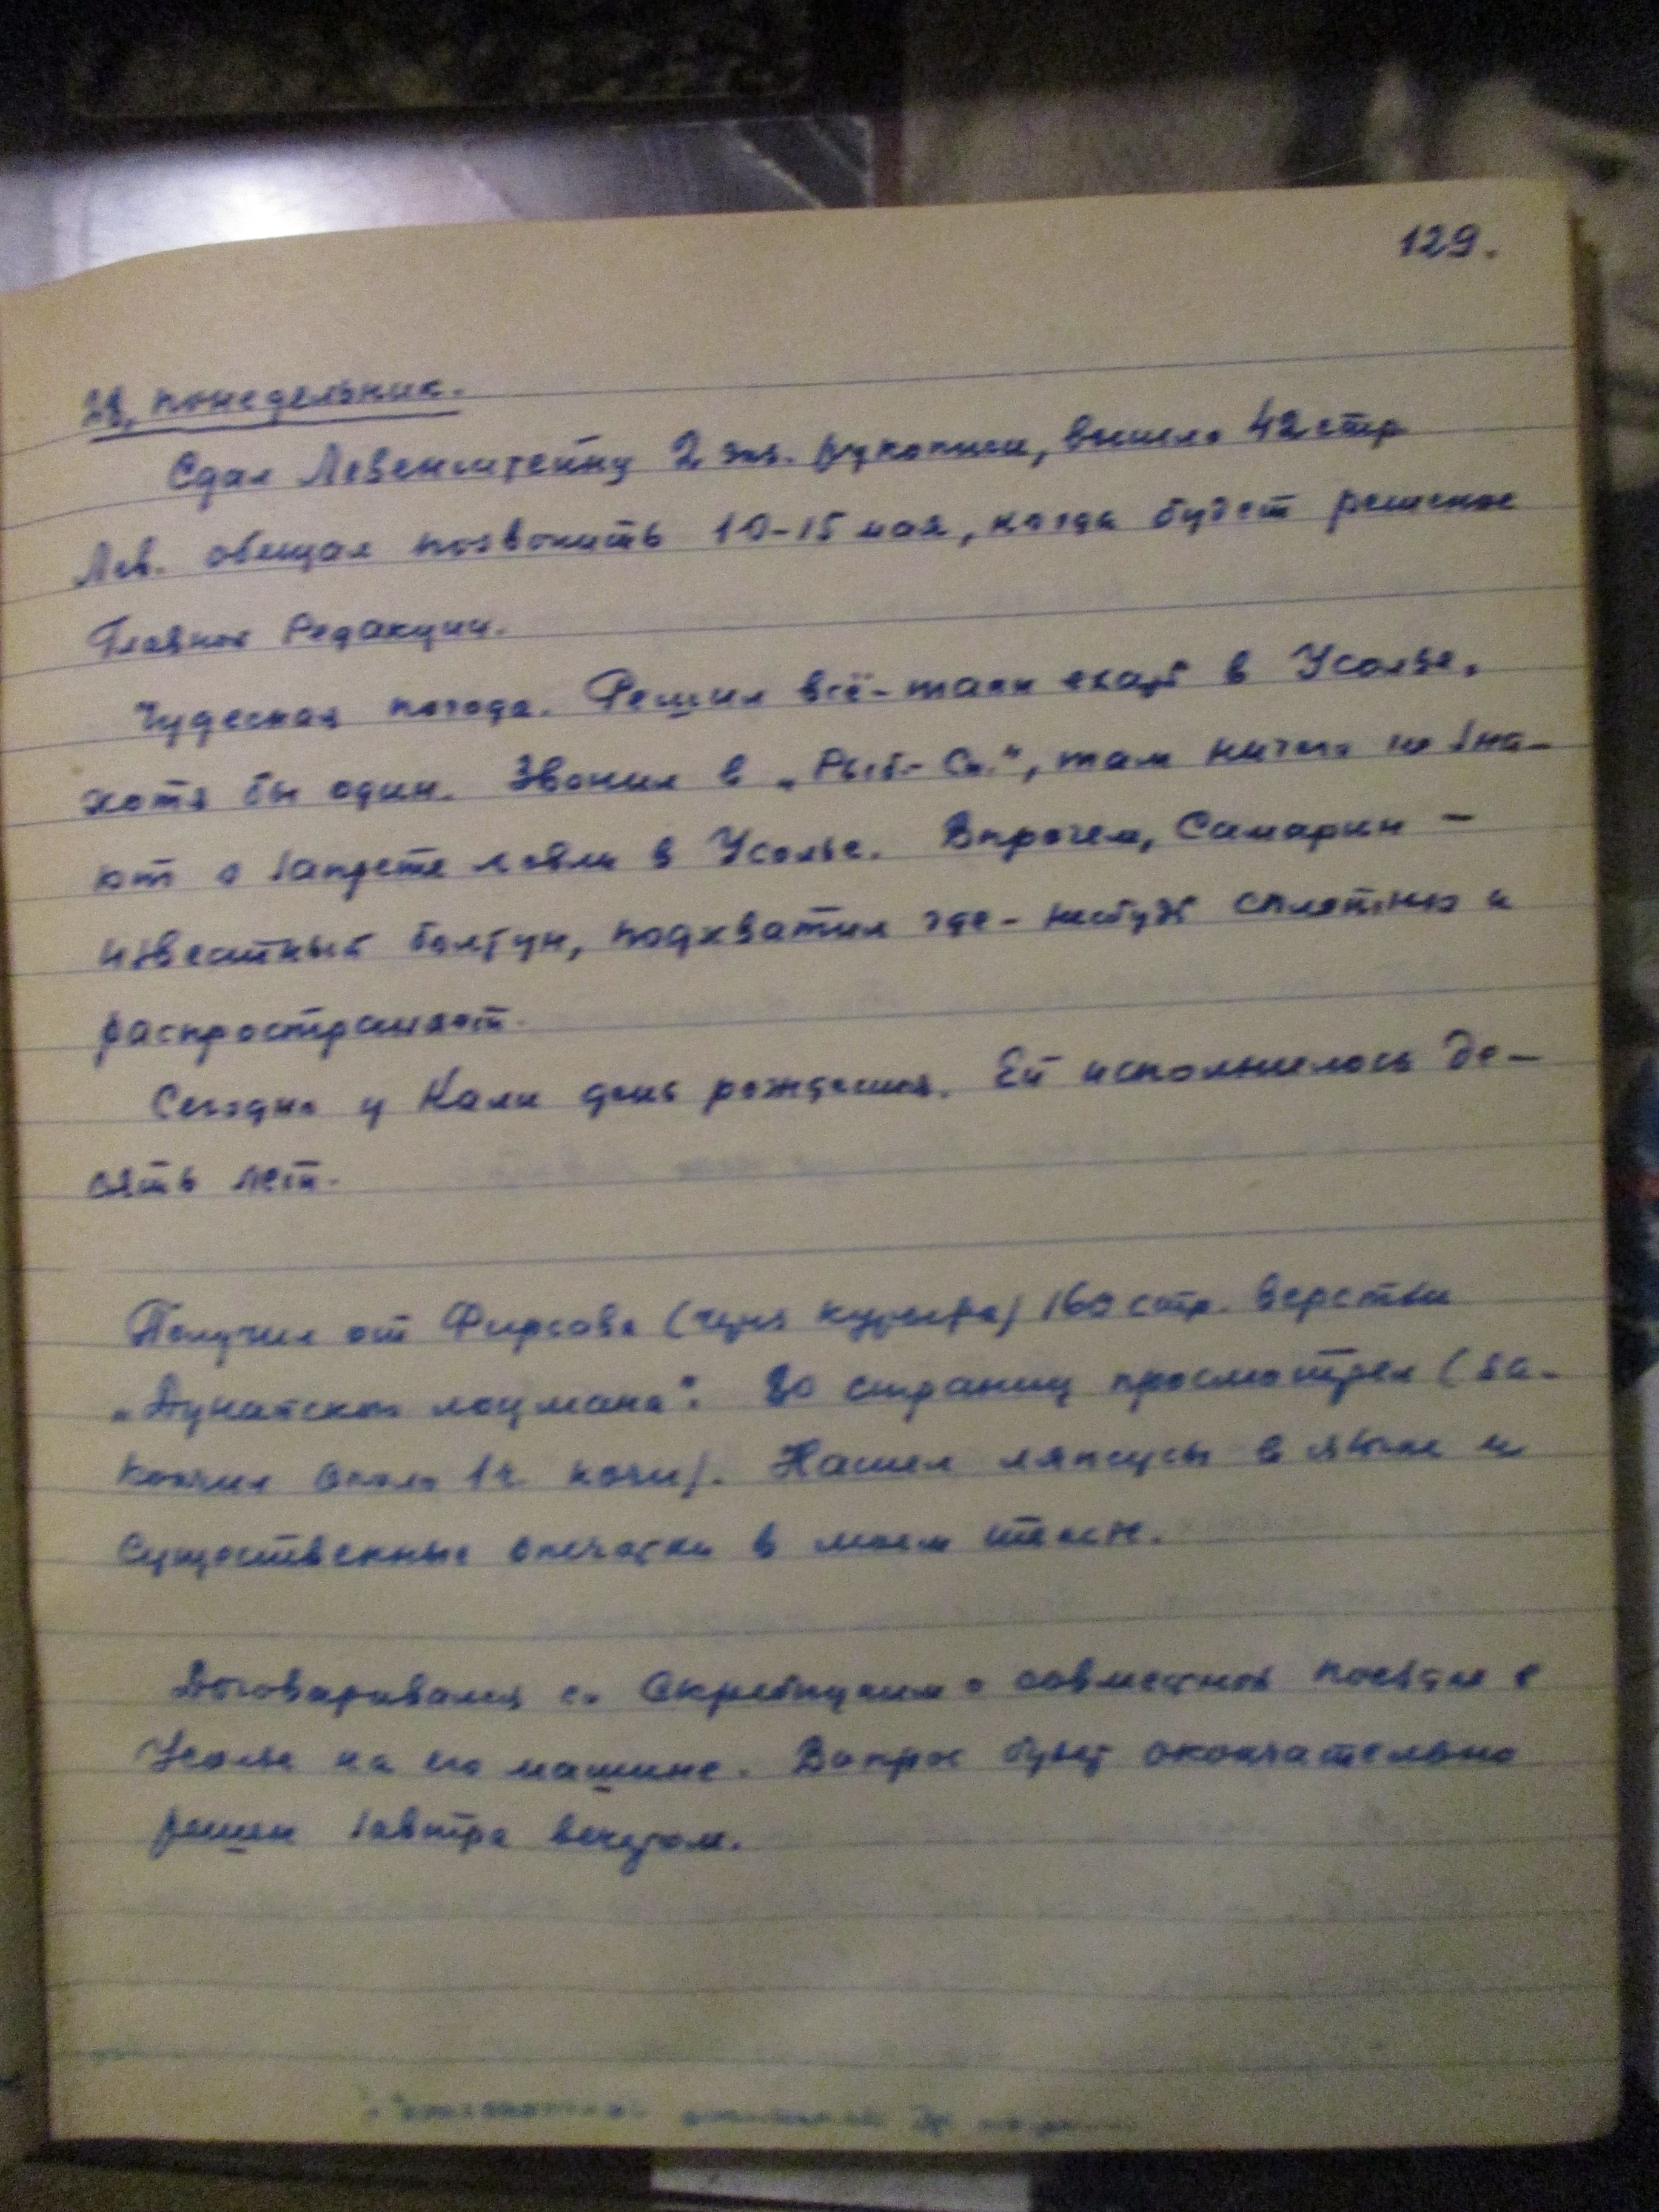 129.
28, понедельник.
Сдал Левенштейну 2 экз. рукописи, вышло 42 стр
Лев. обещал позвонить 10-15 мая, когда будет решение
Главной Редакции.
Чудесная погода. Решил всё-таки ехать в Усолье,
хотя бы один. Звонил в „Рыб.-Сп.", там ничего не зна-
ют о запрете ловли в Усолье. Впрочем, Самарин –
известный болтун, подхватил где-нибудь сплетню и
распространяет.
Сегодня у Кали день рождения. Ей исполнилось де-
сять лет.
Получил от Фирсова (через курьера) 160 стр. верстки
„Дунайского лоцмана". 80 страниц просмотрел (за-
кончил около 1 ч. ночи). Нашел ляпсусы в языке и
существенные опечатки в моем тексте.
Договаривался со Скребицким о совместной поездке в
Усолье на его машине. Вопрос будет окончательно
решен завтра вечером.